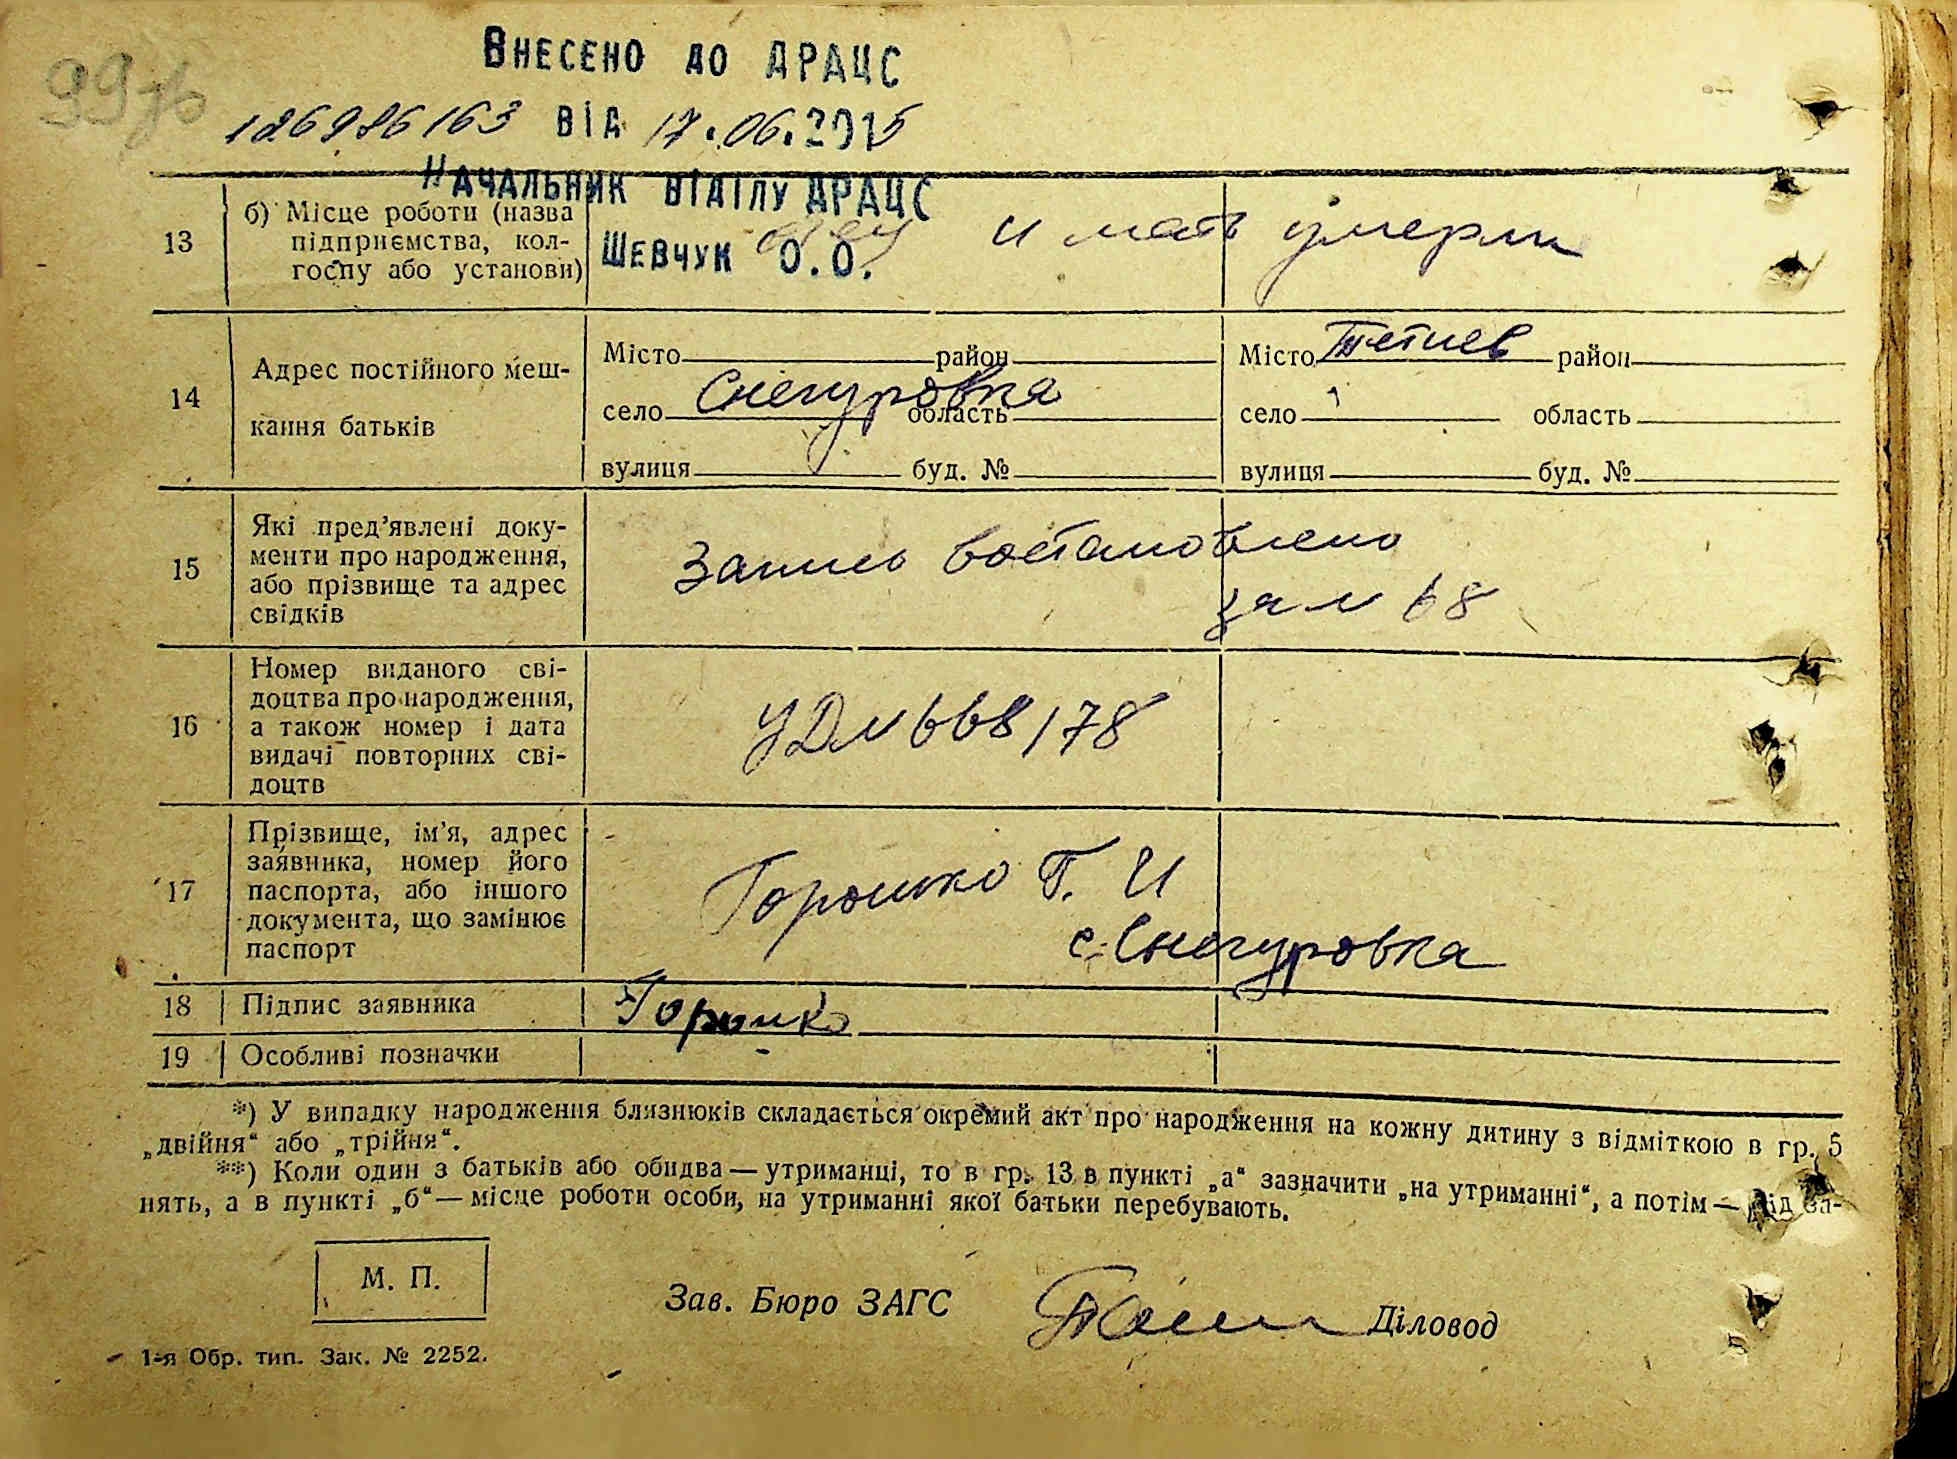 99зв
ВНЕСЕНО ДО ДРАЦС
126986163 ВІД 17.06.2015
НАЧАЛЬНИК ВІДІЛУ ДРАЦС
ШЕВЧУК О.О.
13 б) Місце роботи (назва підприємства, кол-
госпу або установи)
и мать умерли
14 Адрес постійного меш-
кання батьків
Місто район Місто Тетиев район
село Снегуровка область село область
вулиця буд. № вулиця буд. №
15 Які пред'явлені доку-
менти про народження,
або прізвище та адрес
свідків
Запись востановлено
за № 68
16 Номер виданого сві-
доцтва про народження,
а також номер і дата
видачі повторних сві-
доцтв
УД № 668178
17 Прізвище, ім'я, адрес
заявника, номер його
паспорта, або іншого
документа, що замінює
паспорт
Горошко Г. И
с. Снегуровка
18 Підпис заявника Горошко
19 Особливі позначки
*) У випадку народження близнюків складається окремий акт про народження на кожну дитину з відміткою в гр. 5
„двійня“ або „трійня“.
**) Коли один з батьків або обидва — утриманці, то в гр. 13 в пункті „а“ зазначити „на утриманні“, а потім — рід за-
нять, а в пункті „б“ — місце роботи особи, на утриманні якої батьки перебувають.
М. П.
Зав. Бюро ЗАГС Діловод
1-я Обр. тип. Зак. № 2252.